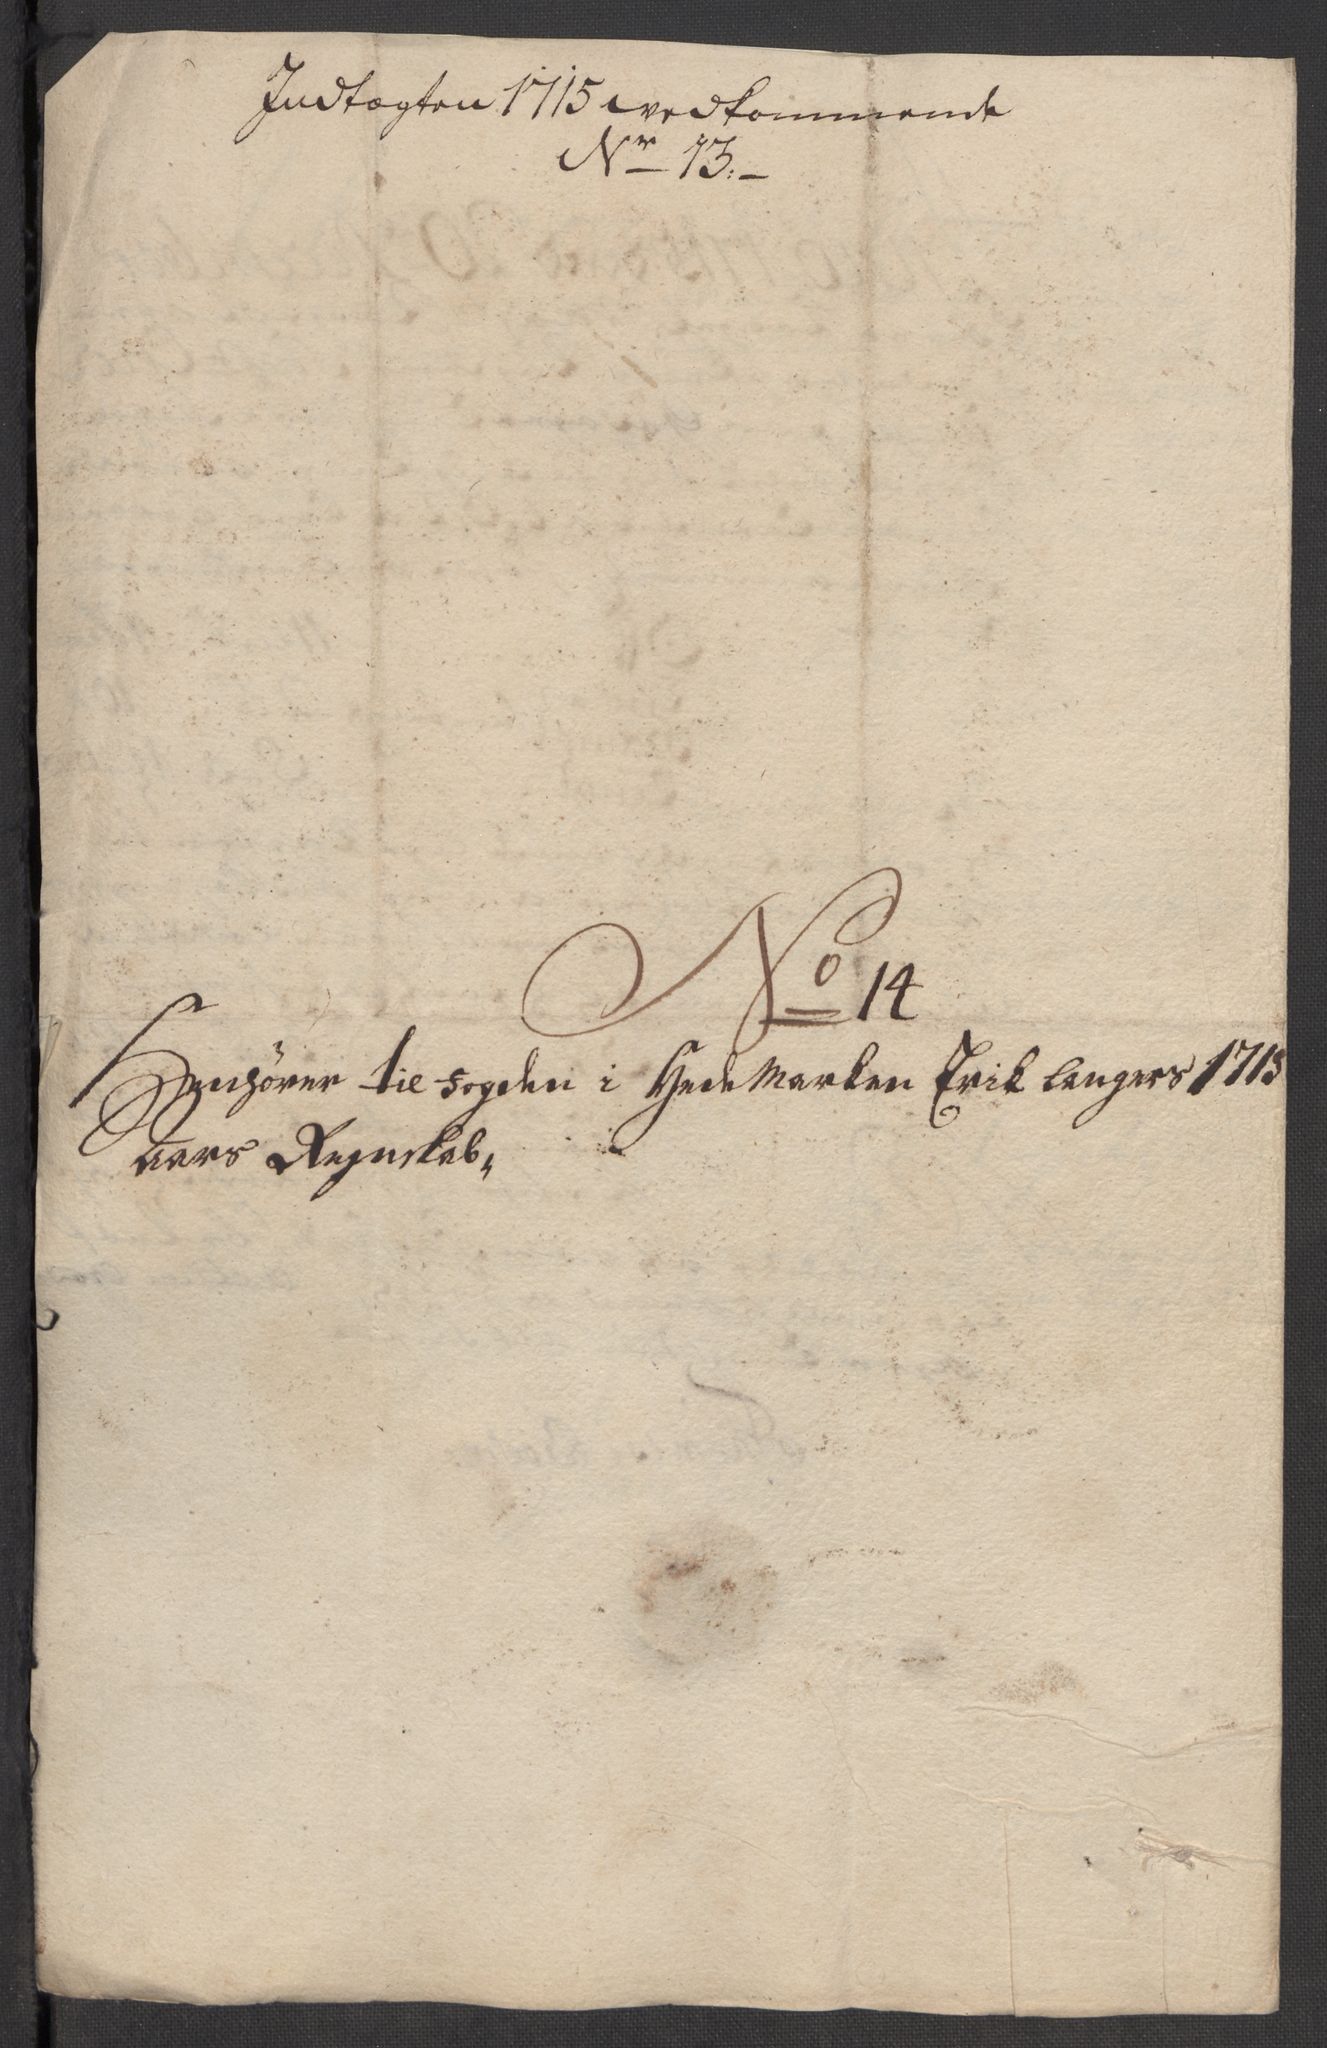 Indtægten 1715 vedkommende
Nr 13.-
No 14
Henhörer til fogden i Hedemarken Erik langers 1715
aars Regnskab,